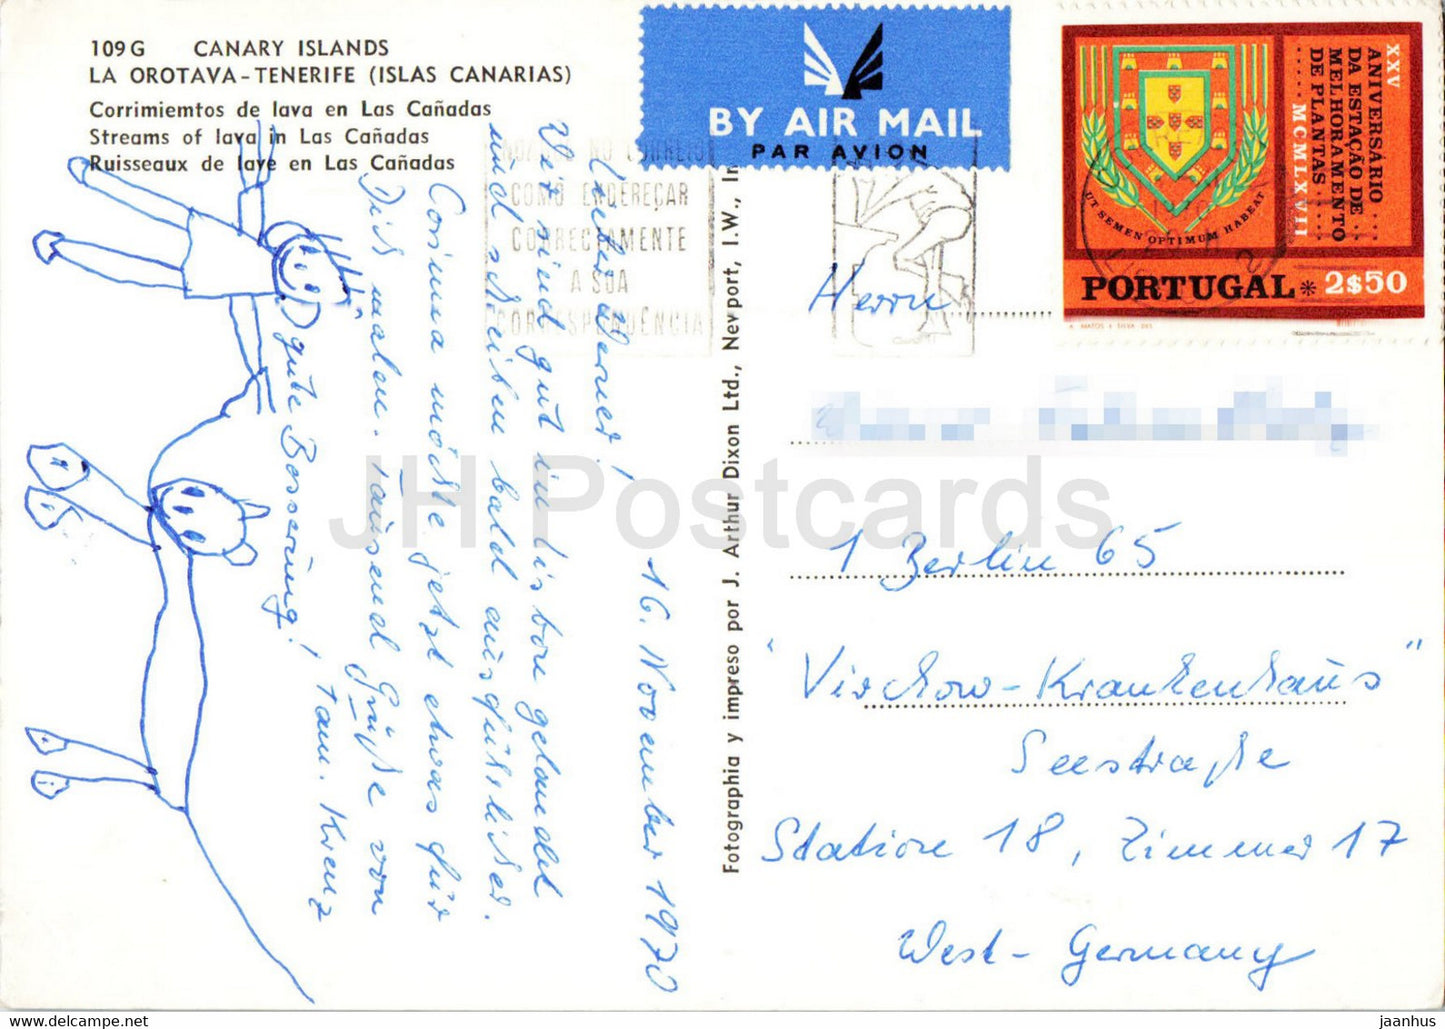 109 G CANARY ISLANDS
LA OROTAVA - TENERIFE (ISLAS CANARIAS)
Corrimiemtos de lava en Las Cañadas
Streams of lava in Las Cañadas
Ruisseaux de lave en Las Cañadas
BY AIR MAIL
PAR AVION
XXV
ANIVERSÁRIO
DA ESTAÇÃO DE
MELHORAMENTO
DE PLANTAS
MCMLXVII
UT SEMEN OPTIMUM HABEAT
PORTUGAL * 2$50
A. MATOS E SILVA DES.
NO CORREIO
COMO ENDEREÇAR
CORRECTAMENTE
A SUA
CORRESPONDÊNCIA
16. November 1970
Lieber Werner!
Wir sind gut in Lisbon gelandet
und schreiben bald ausführlicher.
Corinna möchte jetzt etwas für
Dich malen. Tausend Grüße von
Fam. Krenz
gute Besserung!
Fotographia y impreso por J. Arthur Dixon Ltd., Newport, I.W., In
Herrn
1 Berlin 65
"Virchow-Krankenhaus"
Seestraße
Station 18, Zimmer 17
West-Germany
JH Postcards
www.jhpostcards.com
jaanhus